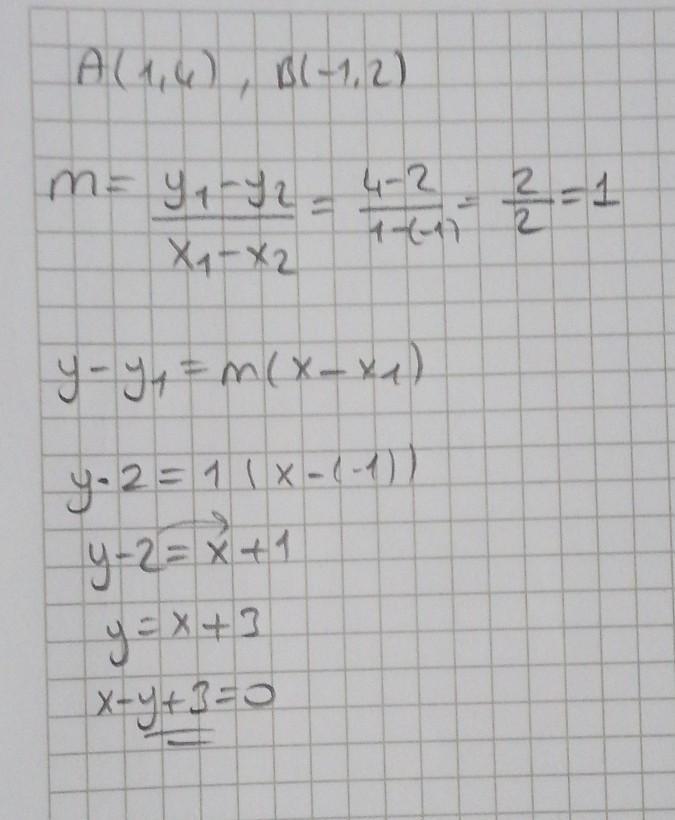 A(1,4), B(-1,2)
m = y₁-y₂/x₁-x₂ = 4-2/1-(-1) = 2/2 = 1
y-y₁ = m(x-x₁)
y-2 = 1(x-(-1))
y-2 = x+1
y = x+3
x-y+3=0